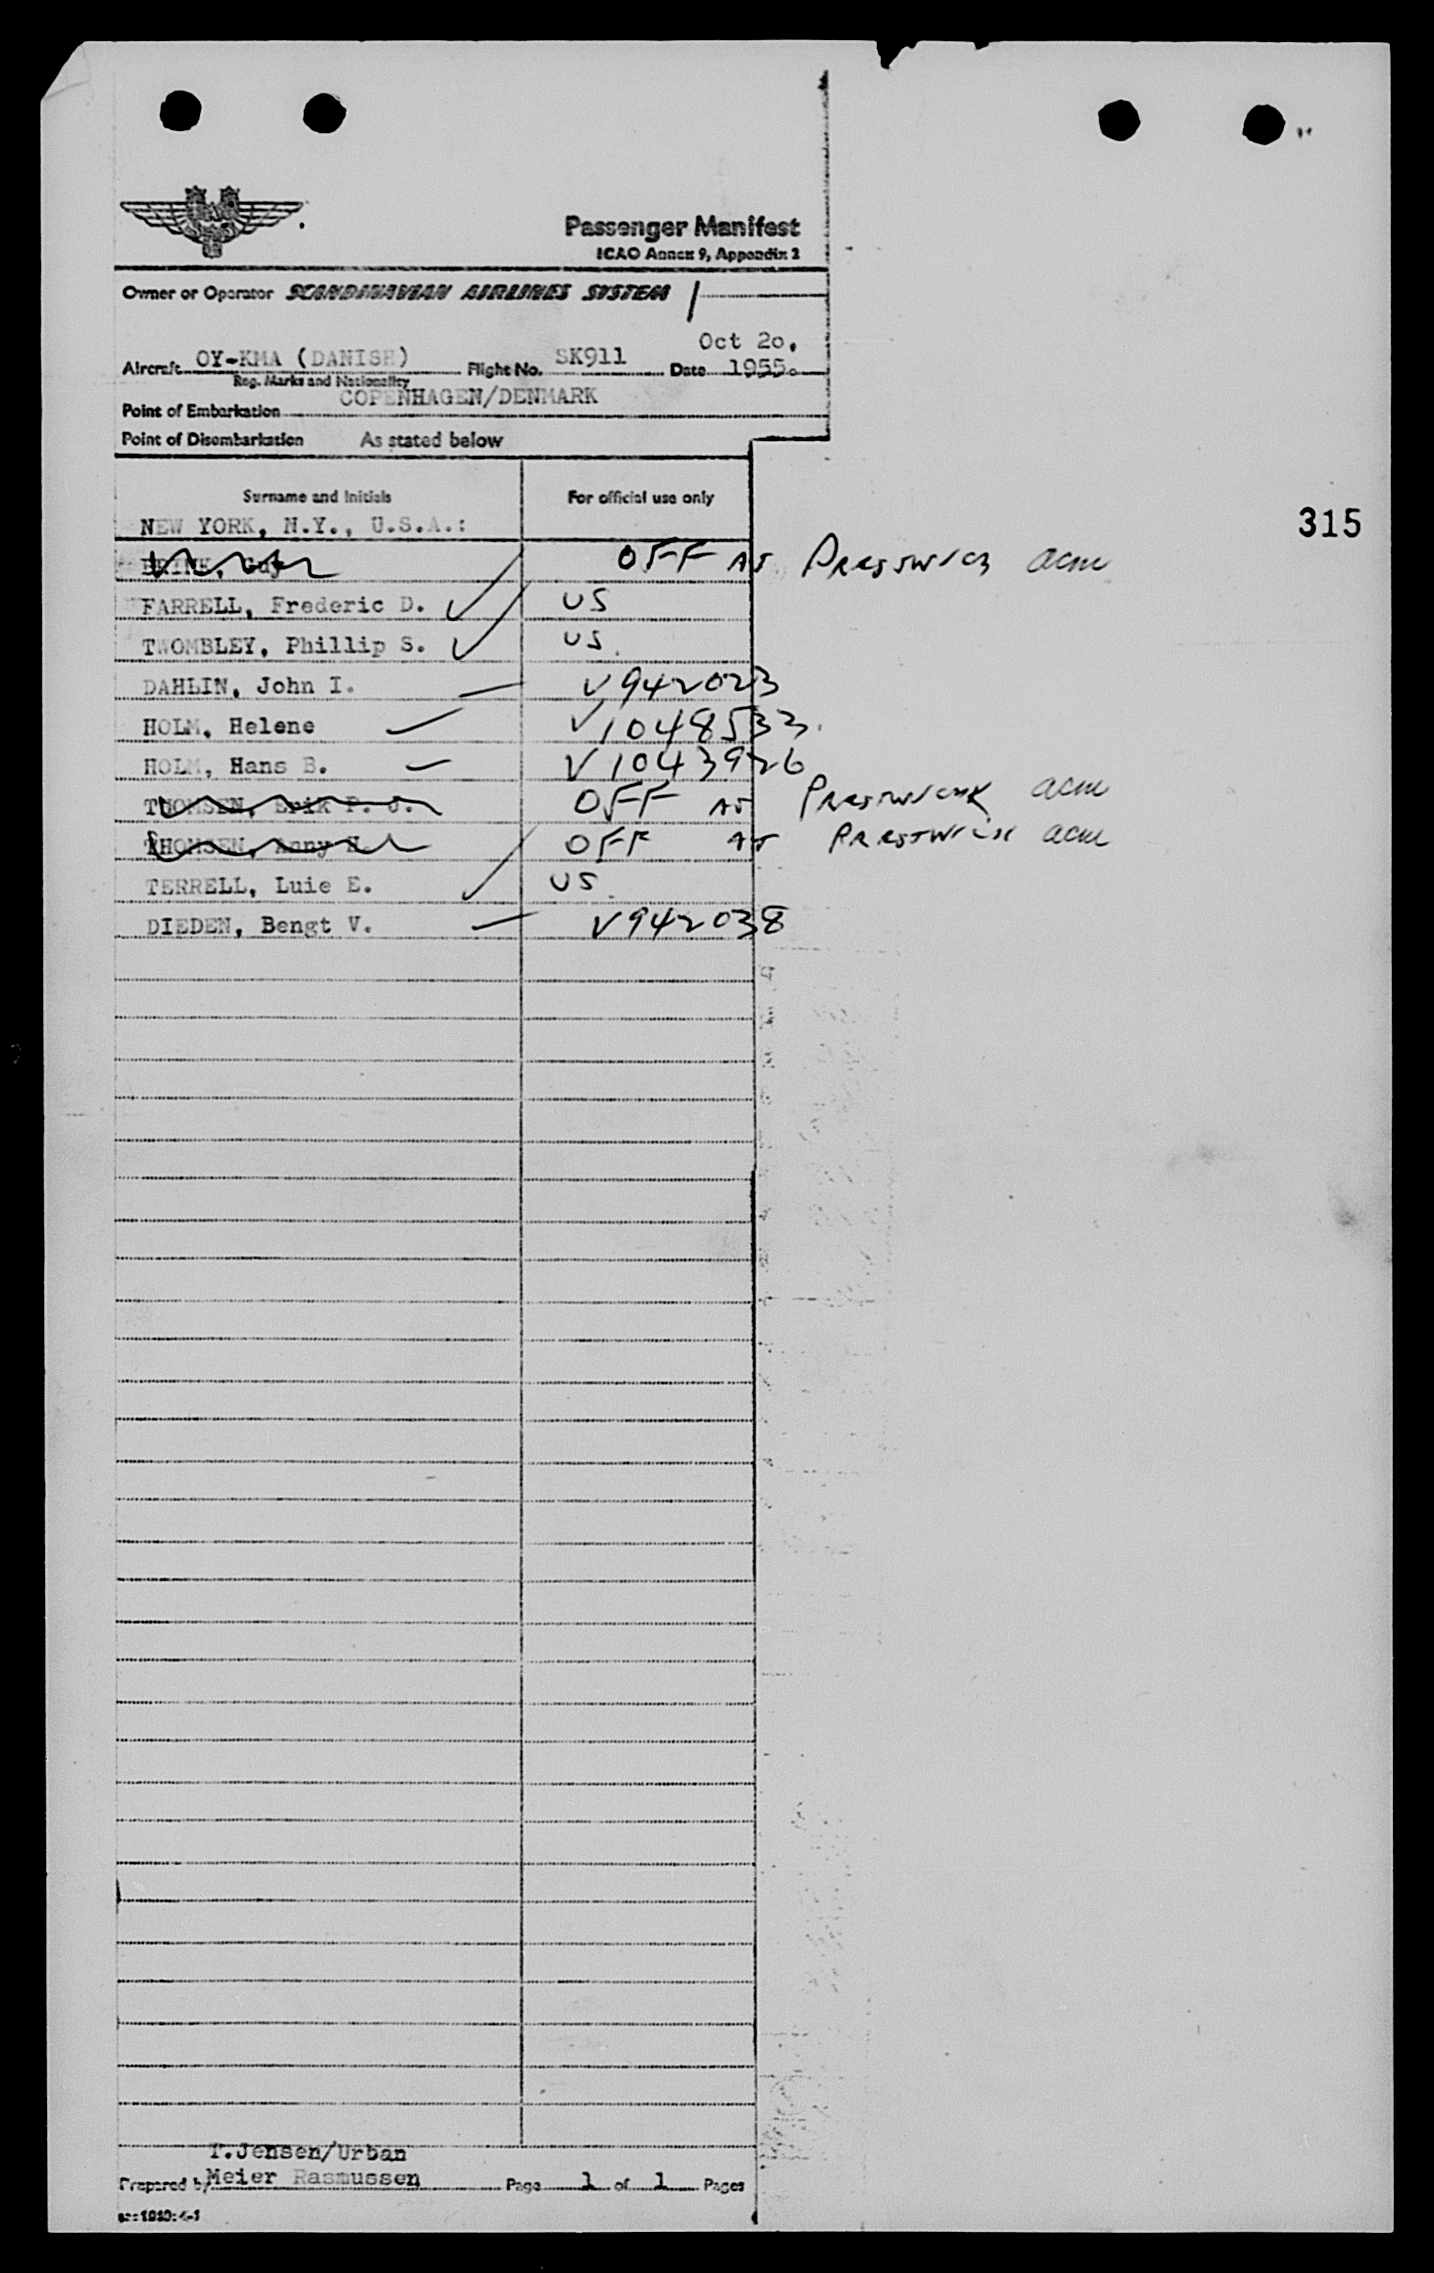 Passenger Manifest
ICAO Annex 9, Appendix 2
Owner or Operator SCANDINAVIAN AIRLINES SYSTEM
Oct 20,
Aircraft OY-KMA (DANISH) Flight No. SK911 Date 1955.
Reg. Marks and Nationality
COPENHAGEN/DENMARK
Point of Embarkation
Point of Disembarkation As stated below
Surname and Initials For official use only
NEW YORK, N.Y., U.S.A.:
315
OFF AT PRESTWICK acm
FARRELL, Frederic D. US
TWOMBLEY, Phillip S. US.
DAHLIN, John I. V942023
HOLM, Helene V1048533.
HOLM, Hans B. V1043926
THOMSEN, Erik P. J. OFF AT PRESTWICK acm
THOMSEN, Anny H. OFF AT PRESTWICK acm
TERRELL, Luie E. US.
DIEDEN, Bengt V. V942038
T.Jensen/Urban
Prepared by Meier Rasmussen Page 1 of 1 Pages